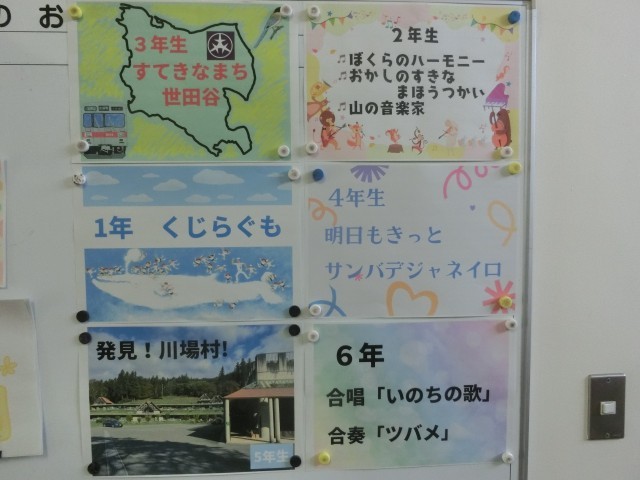 のお
3年生
すてきなまち
世田谷
2年生
♫ぼくらのハーモニー
♫おかしのすきな
まほうつかい
♫山の音楽家
1年 くじらぐも
4年生
明日もきっと
サンバデジャネイロ
発見！川場村!
5年生
6年
合唱「いのちの歌」
合奏「ツバメ」